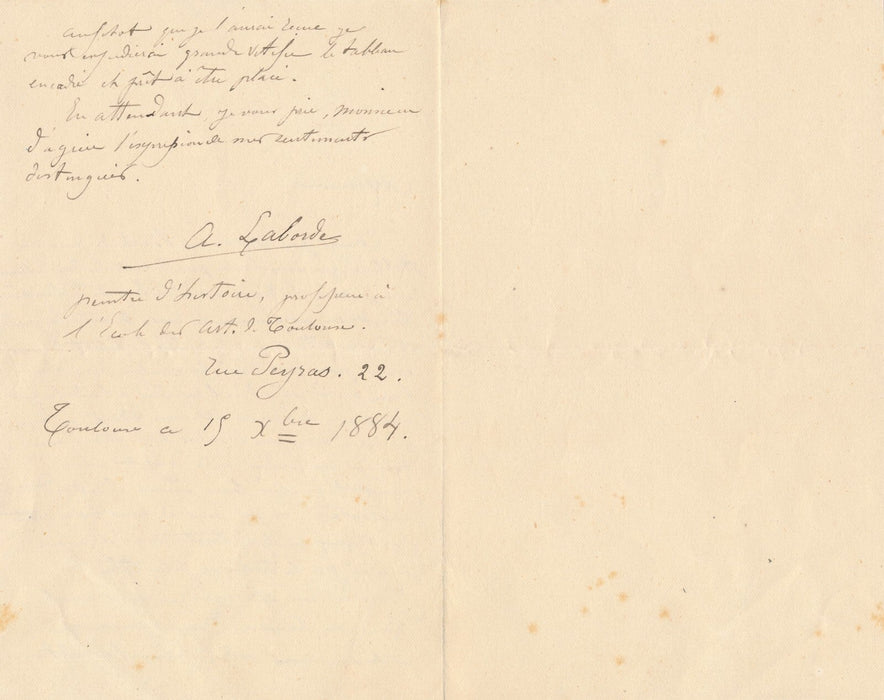 aussitot que je l'aurai reçue je
vous expedierai grande vitesse le tableau
encadré et prêt à être placé.
En attendant, je vous prie, monsieur
d'agréer l'expression de mes sentiments
distingués.
A. Laborde
peintre d'histoire, professeur à
l'Ecole des Art. de Toulouse.
rue Peyras. 22.
Toulouse ce 15 Xbre 1884.